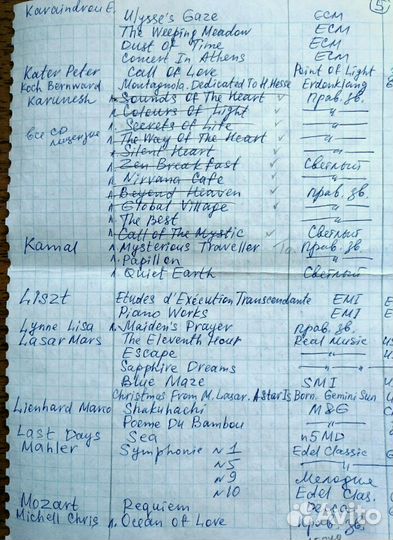 Karaindrou E. Ulysse's Gaze ECM ⑤
The Weeping Meadow ECM
Dust Of Time ECM
Concert In Athens ECM
Kater Peter Call Of Love Point of Light
Koch Bernward Montagnola, Dedicated To H. Hesse Erdenklang
Karunesh л. Sounds Of The Heart ✓ Прав. зв.
л. Colours Of Light ✓ —"—
л. Secrets of Life ✓ —"—
все CD л. The Way Of The Heart ✓ —"—
л. Silent Heart ✓ —"—
л. Zen Breakfast ✓ Светлый
л. Nirvana Cafe —"—
л. Beyond Heaven ✓ Прав. зв.
л. Global Village ✓ —"—
л. The Best —"—
л. Call Of The Mystic ✓ Светлый
Kamal л. Mysterious Traveller Прав. зв.
л. Papillon —"—
л. Quiet Earth Светлый
Liszt Etudes d'Exécution Transcendante EMI
Piano Works EMI
Lynne Lisa л. Maiden's Prayer Прав. зв.
Lasar Mars The Eleventh Hour Real Music
Escape —"—
Sapphire Dreams —"—
Blue Maze SMI
Christmas From M. Lasar. A Star Is Born. Gemini Sun
Lienhard Mario Shakuhachi M&E
Poeme Du Bambou —"—
Last Days Sea n5MD
Mahler Symphonie №1 Edel Classic
№5 —"—
№9 Мелодия
№10 Edel Clas.
Mozart Requiem Decca
Michell Chris л. Ocean Of Love Прав. зв.
Avito